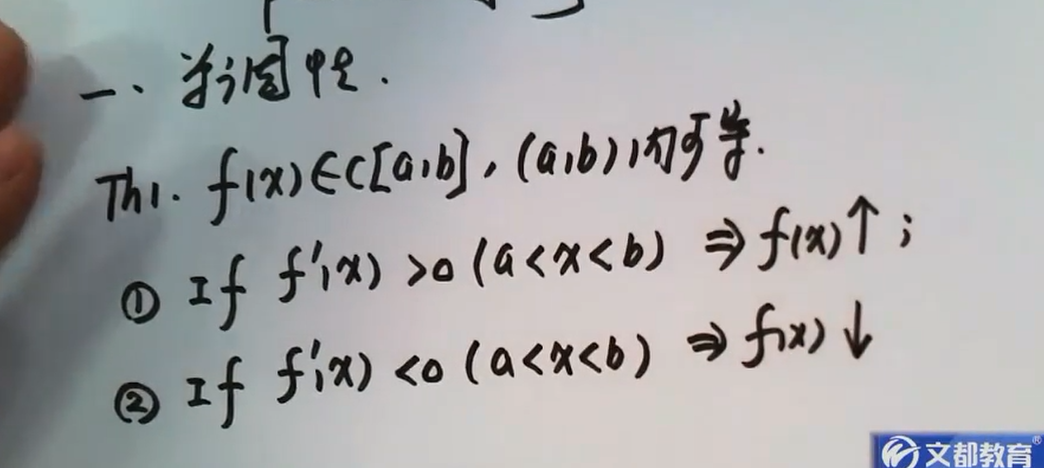 一、单调性.
Th1. f(x)∈C[a,b], (a,b)内可导.
① If f'(x)>0 (a<x<b) ⇒ f(x)↑;
② If f'(x)<0 (a<x<b) ⇒ f(x)↓
文都教育®